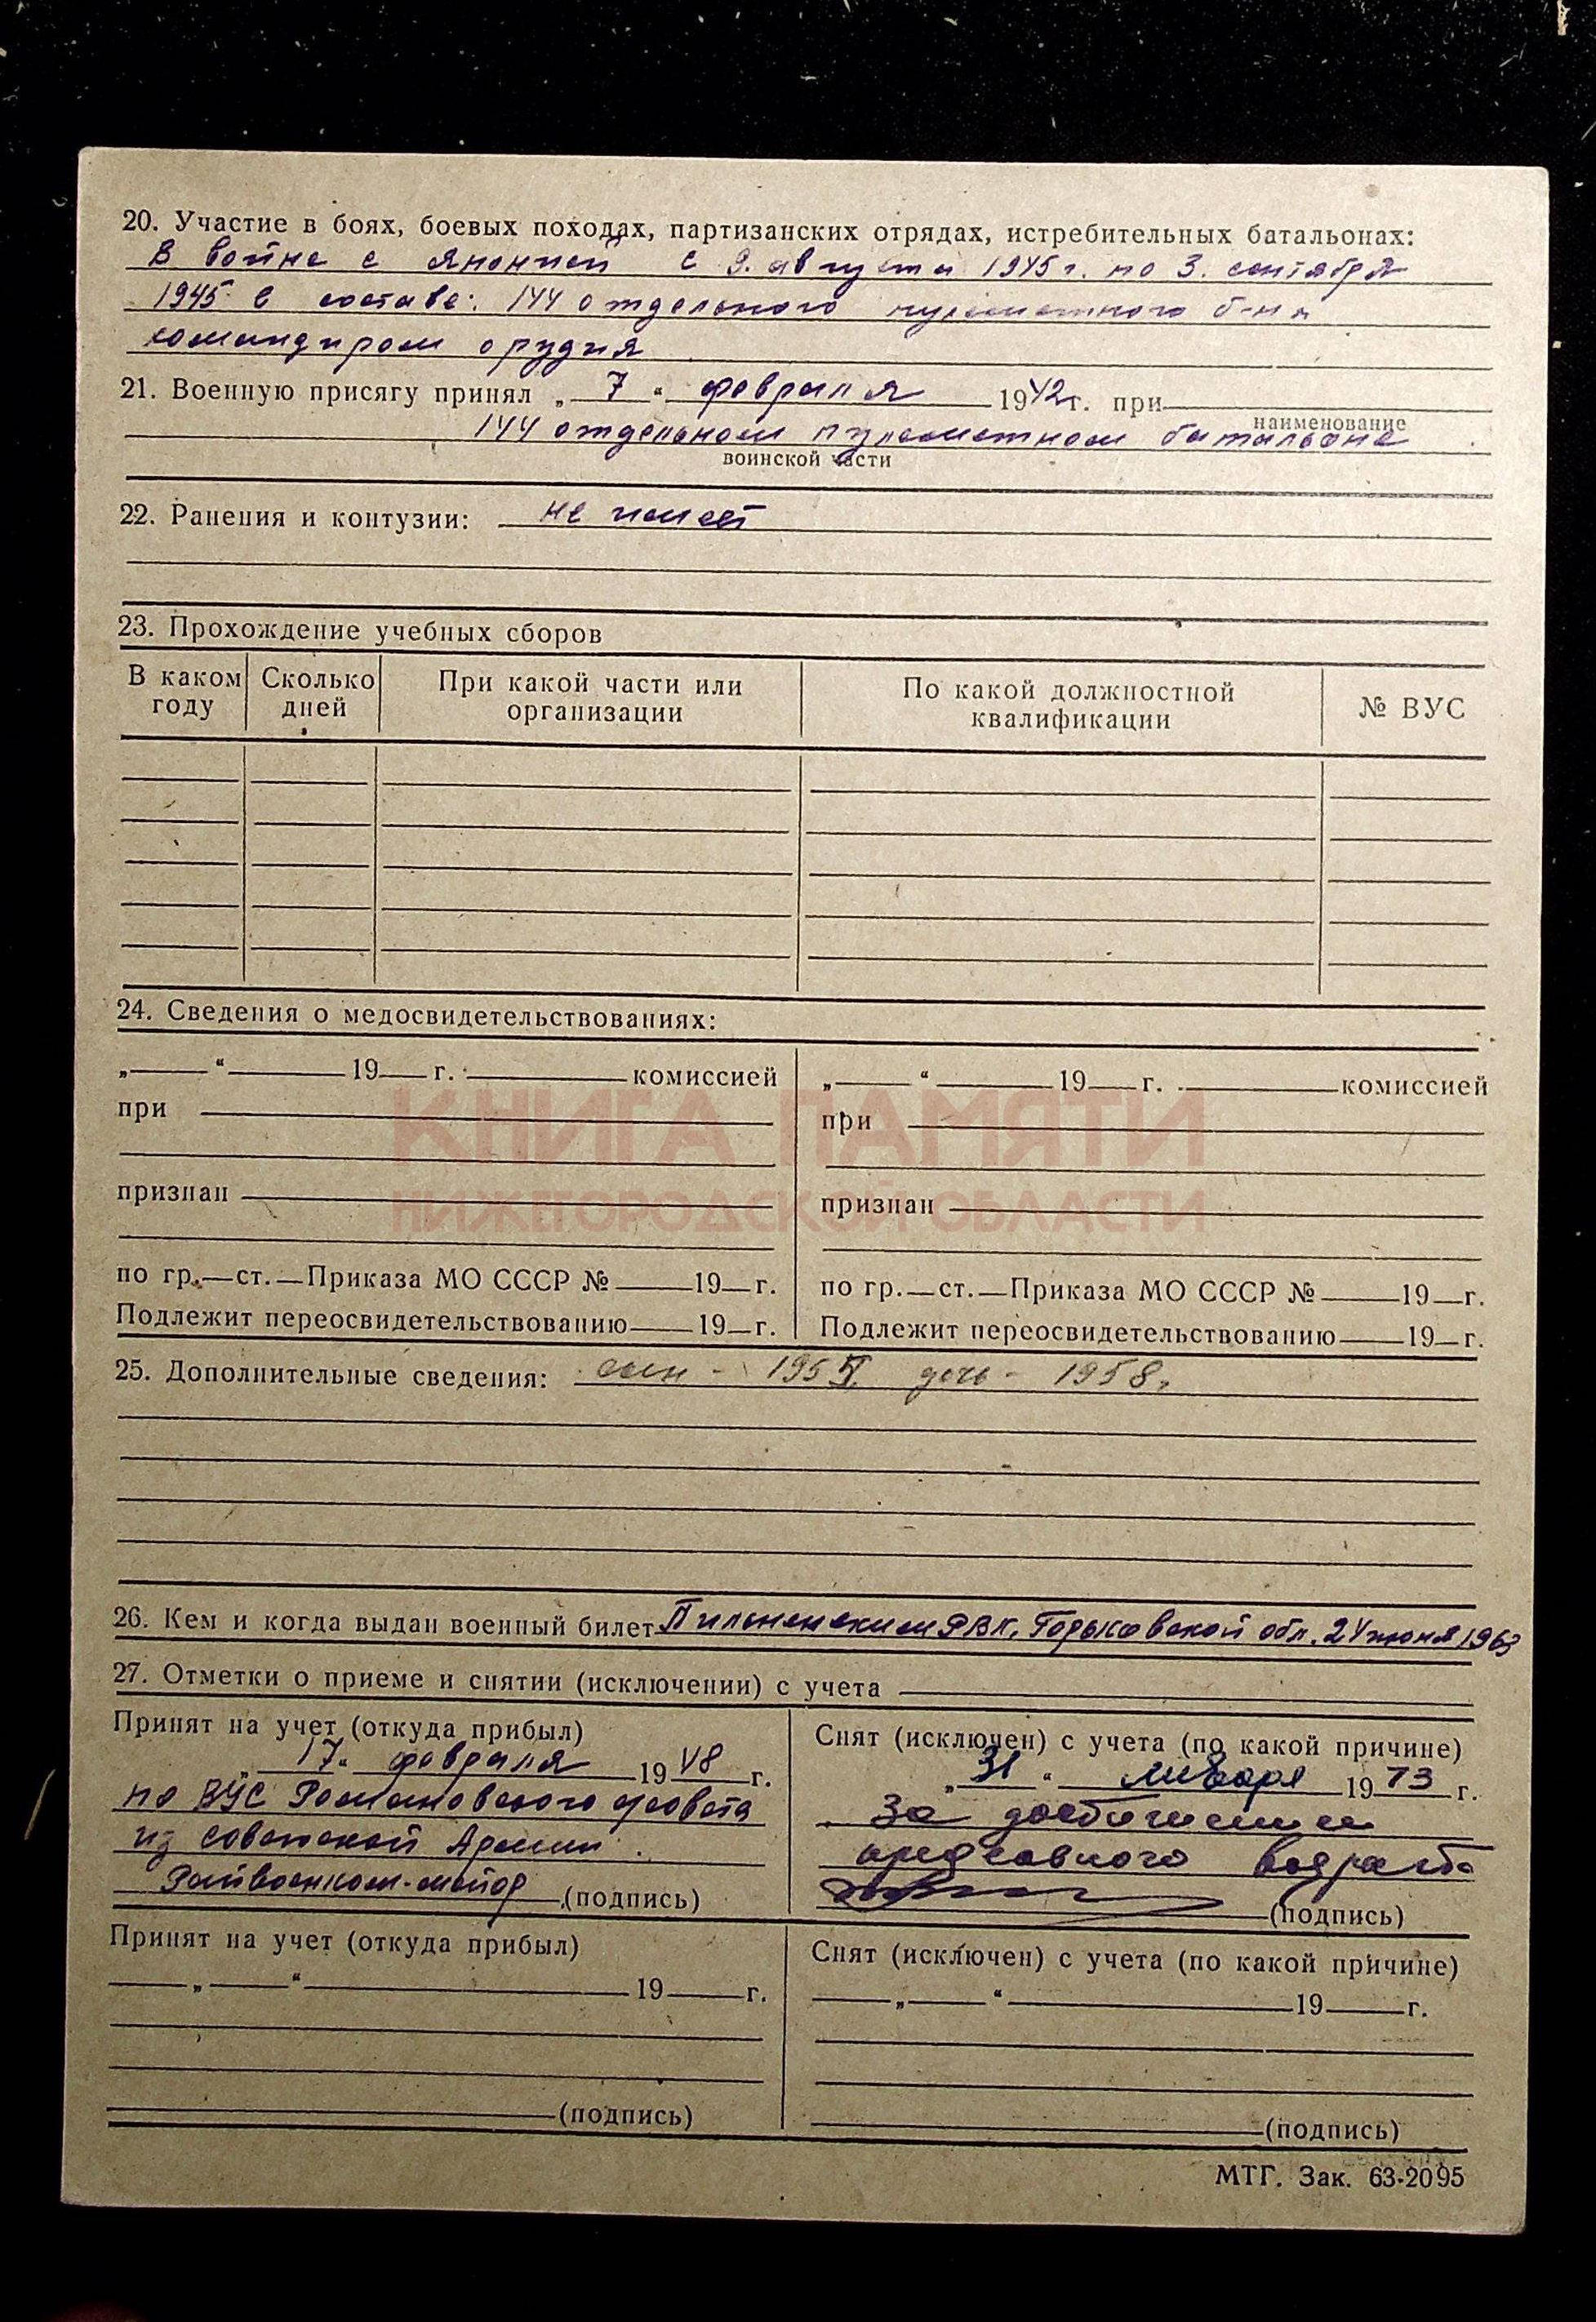 20. Участие в боях, боевых походах, партизанских отрядах, истребительных батальонах:
В войне с Японией с 9. августа 1945 г. по 3. сентября
1945 в составе: 144 отдельного пулеметного б-на
командиром орудия
21. Военную присягу принял „ 7 “ февраля 1942 г. при
наименование
144 отдельном пулеметном батальоне
воинской части
22. Ранения и контузии: не имеет
23. Прохождение учебных сборов
В каком году Сколько дней При какой части или организации По какой должностной квалификации № ВУС
24. Сведения о медосвидетельствованиях:
„ “ 19 г. комиссией „ “ 19 г. комиссией
при при
КНИГА ПАМЯТИ
признан признан
НИЖЕГОРОДСКОЙ ОБЛАСТИ
по гр. ст. Приказа МО СССР № 19 г. по гр. ст. Приказа МО СССР № 19 г.
Подлежит переосвидетельствованию 19 г. Подлежит переосвидетельствованию 19 г.
25. Дополнительные сведения: сын - дочь - 1958.
26. Кем и когда выдан военный билет Пильненским РВК, Горьковской обл. 24 июня 1963
27. Отметки о приеме и снятии (исключении) с учета
Принят на учет (откуда прибыл)
„ 17 “ февраля 1948 г.
по ВУС Романовского с/совета
из советской Армии.
Райвоенком-майор (подпись)
Снят (исключен) с учета (по какой причине)
„ 31 “ января 1973 г.
за достижением
предельного возраста
(подпись)
Принят на учет (откуда прибыл)
„ “ 19 г.
(подпись)
Снят (исключен) с учета (по какой причине)
„ “ 19 г.
(подпись)
МТГ. Зак. 63-2095